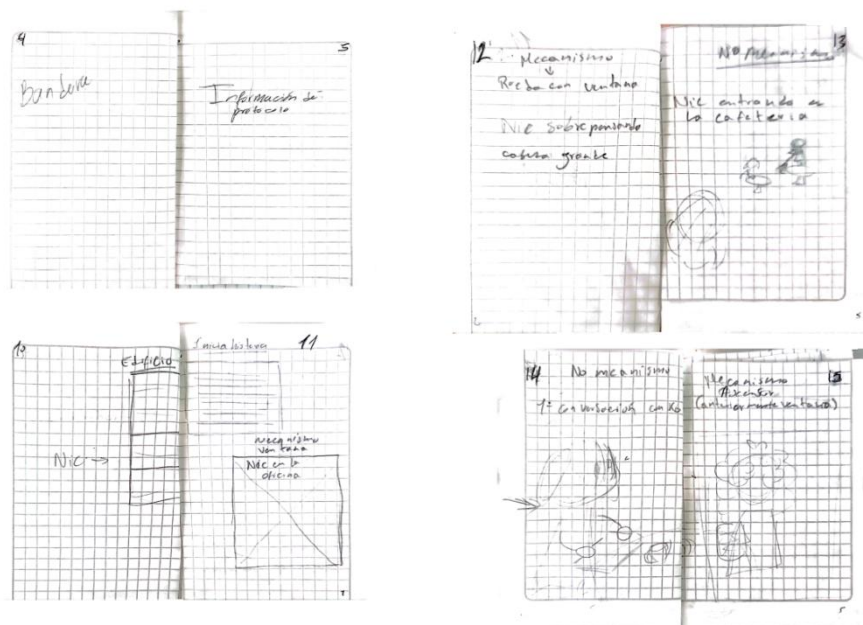 4
Bandera
5
Información de
protocolo
12
Mecanismo
Rueda con ventana
Nic sobrepensando
cabeza grande
13
No mecanismo
Nic entrando a
la cafeteria
10
Edificio
Nic →
11
Inicia historia
mecanismo
ventana
Nic en la
oficina
14
No mecanismo
1ª conversación con
Mecanismo
Ascensor
(anteriormente ventana)
15